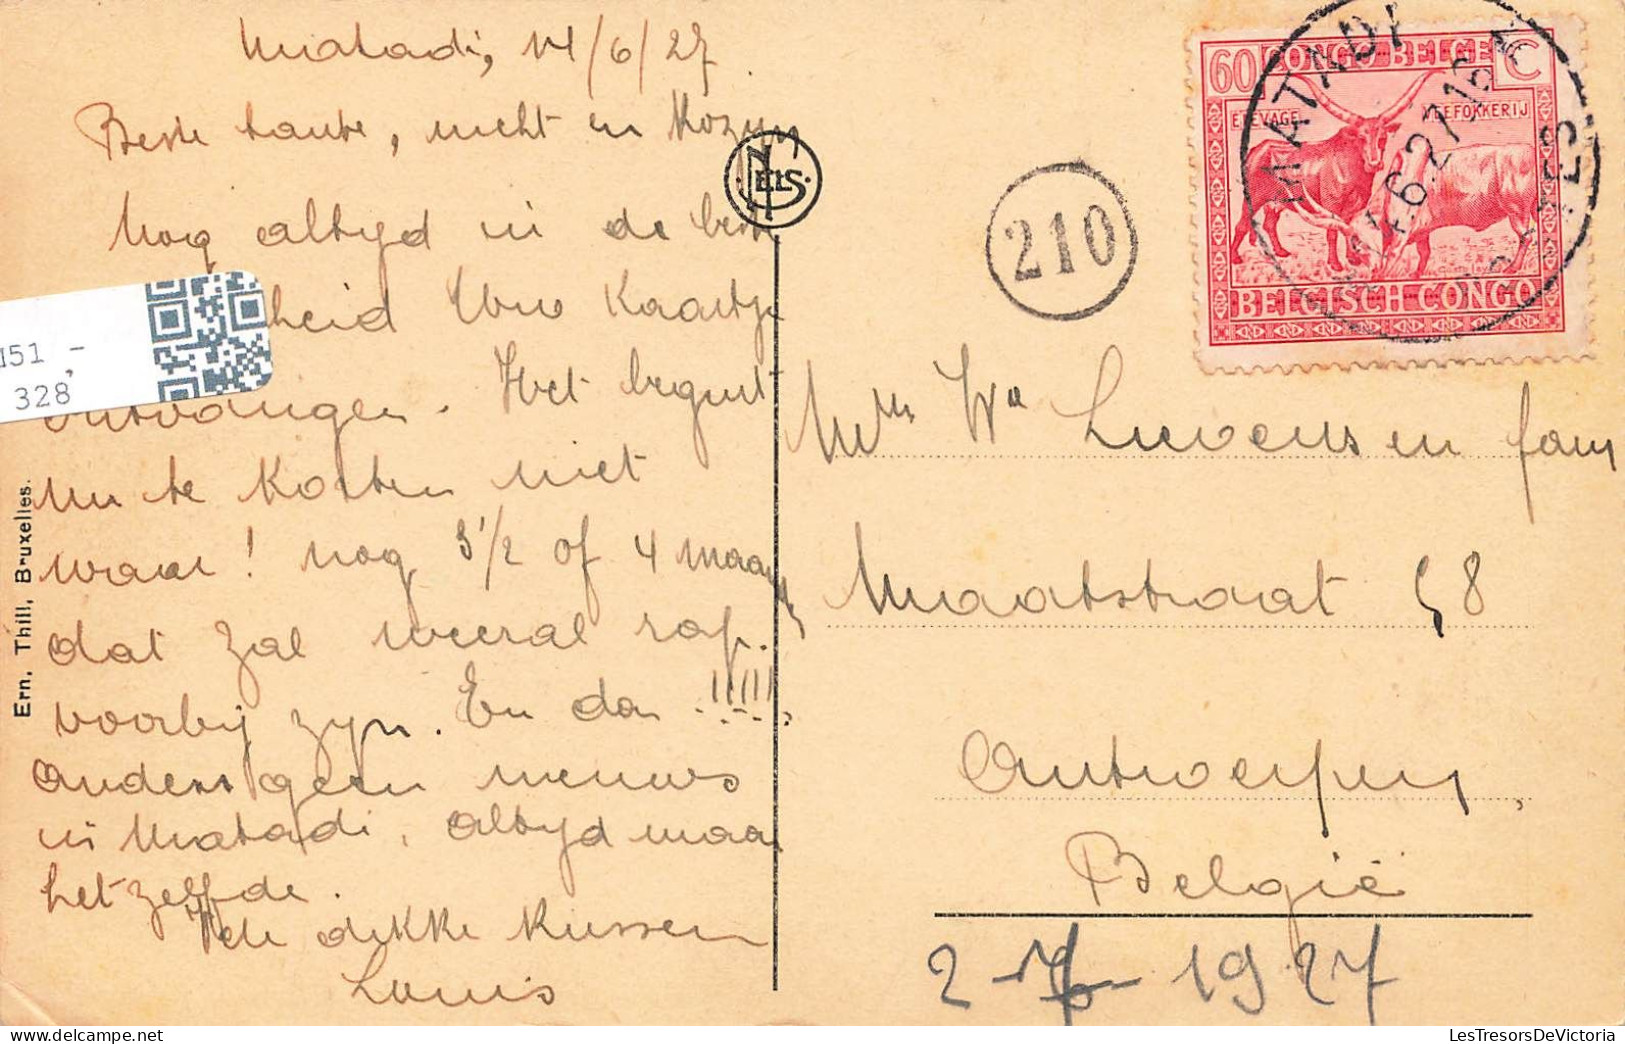 Matadi, 14/6/27
Beste tante, nicht en Kozyn
Nog altyd in de beste
heid Uw Kaartje
ontvangen. Het begint
nu te korten niet
waar! nog 3 1/2 of 4 maand
dat zal weeral rap
voorby zyn. En dan !!!!!
anders geen nieuws
in Matadi, altyd maar
hetzelfde.
Vele dikke Kussen
Louis
Ern. Thill, Bruxelles.
NELS
N51 -
328
210
60 CONGO BELGE C
ELEVAGE VEEFOKKERIJ
BELGISCH CONGO
MATADI
Wa Lievens en fam
Maatstraat 58
Antwerpen,
België
2-7-1927
LesTresorsDeVictoria.com